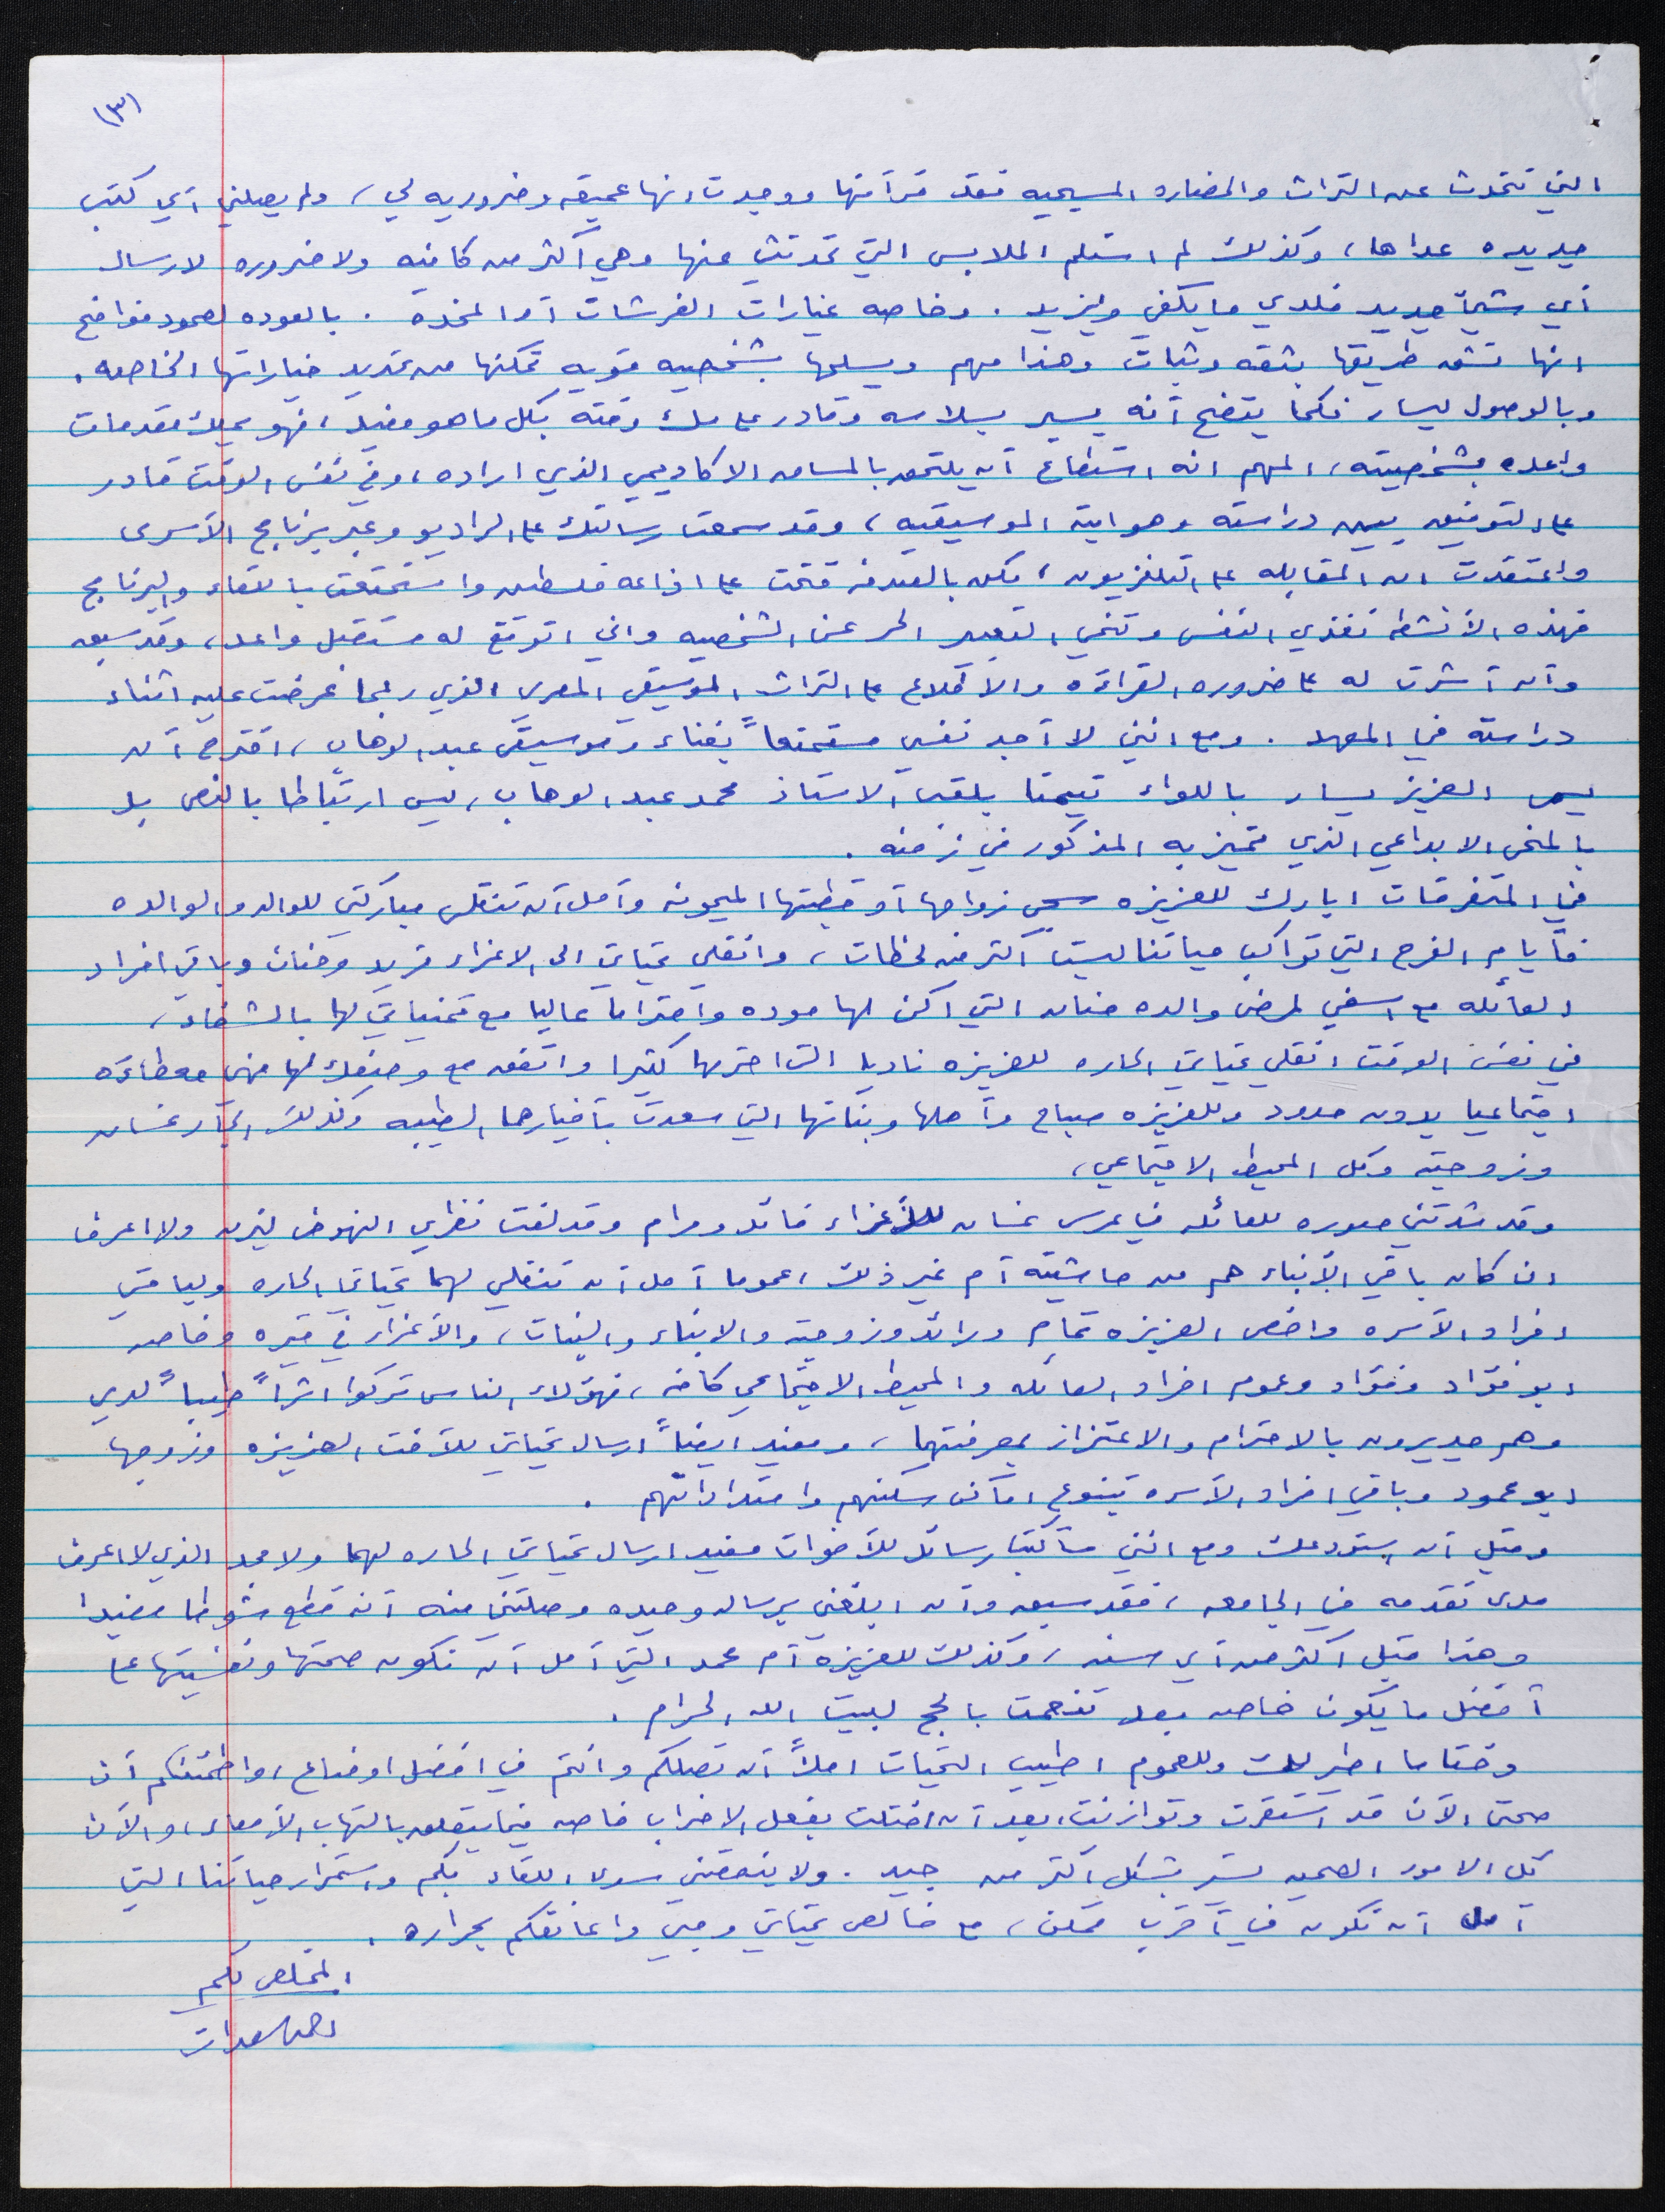 (٣)
التي تتحدث عن التراث والحضاره المسيحيه فقد قرأتها ووجدت انها عميقه وضروريه لي، ولم يصلني أي كتب
جديده عداها، وكذلك لم استلم الملابس التي تحدثتي عنها وهي أكثر من كافيه ولا ضروره لارسال
أي شيئ جديد فلدي ما يكفي ويزيد. وخاصه غيارات الفرشات أو المخدة. بالعوده لصمود فواضح
انها تشق طريقها بثقه وثبات وهذا مهم ويسلحها بشخصيه قويه تمكنها من تحديد خياراتها الخاصه.
وبالوصول ليسار فكما يتضح أنه يسير بسلاسه وقادر على ملئ وقته بكل ما هو مفيد، فهو يملك مقدمات
واعده بشخصيته، المهم انه استطاع أن يلتحق بالمساق الاكاديمي الذي اراده، وفي نفس الوقت قادر
على التوفيق بين دراسته وهوايته الموسيقيه، وقد سمعت رسالتك على الراديو وعبر برنامج الأسرى
واعتقدت ان المقابله على التلفزيون، لكن بالصدفه فتحت على اذاعه فلسطين واستمتعت باللقاء والبرنامج
فهذه الأنشطه تغذي النفس وتنمي التعبير الحر عن الشخصيه واني اتوقع له مستقبل واعد، وقد سبق
وأن أشرت له على ضروره القراءه والاطلاع على التراث الموسيقي المصري الذي ربما عرضت عليه اثناء
دراسته في المعهد. ومع انني لا أجد نفسي مستمتعاً بغناء وموسيقى عبد الوهاب، اقترح أن
يسمى العزيز يسار باللواء تيمنا بلقب الاستاذ محمد عبد الوهاب، ليس ارتباطا بالنص بل
بالمنحى الابداعي الذي تميز به المذكور في زمنه.
في المتفرقات ابارك للعزيزه سجى زواجها أو خطبتها الميمونه وآمل أن تنقلي مباركتي للوالد والوالده
فأيام الفرح التي تواكب حياتنا ليست أكثر من لحظات، وانقلي تحياتي الى الاعزاء فريد وحنان وباقي افراد
العائله مع اسفي لمرض والده حنان التي اكن لها موده واحتراما عاليا مع تمنياتي لها بالشفاء،
في نفس الوقت انقلي تحياتي الحاره للعزيزه ناديا التي احترمها كثيرا واتفق مع وصفك لها فهي معطاءه
اجتماعيا بدون حدود وللعزيزه صباح وأهلها وبناتها التي سعدت بأخبارهما الطيبه وكذلك الجار غسان
وزوجته وكل المحيط الاجتماعي،
وقد شدتني صوره للعائله في عرس غسان للأعزاء قائد ومرام وقد لفت نظري النهوض ليزن ولا اعرف
ان كان باقي الأبناء هم من حاشيته أم غير ذلك، عموما آمل أن تنقلي لهما تحياتي الحاره ولباقي
افراد الأسره واخص العزيزه تمام ورائد وزوجته والابناء والبنات، والأعزاء في قيره وخاصه
ابو فؤاد وفؤاد وعموم افراد العائله والمحيط الاجتماعي كافه، فهؤلاء الناس تركوا اثراً طيباً لدي
وهم جديرون بالاحترام والاعتزاز بمعرفتهما، ومفيد ايضاً ارسال تحياتي للأخت العزيزه وزوجها
ابو محمود وباقي افراد الأسره بتنوع اماكن سكنهم وامتداداتهم.
وقبل أن استودعك ومع انني سأكتب رسائل للأخوات مفيد ارسال تحياتي الحاره لهما ولامجد الذي لا اعرف
مدى تقدمه في الجامعه، فقد سبق وأن ابلغني برساله وحيده وصلتني منه أنه قطع شوطا مفيدا
وهذا قبل اكثر من أي سنه، وكذلك للعزيزة أم محمد التي آمل أن تكون صحتها ونفسيتها على
أفضل ما يكون خاصه بعد تنعمت بالحج لبيت الله الحرام.
وختاما اطير لك وللعموم اطيب التحيات املاً أن تصلكم وانتم في افضل اوضاع، واطمئنكم أن
صحتي الآن قد استقرت وتوازنت، بعد أن اختلت بفعل الاضراب خاصه فيما يتعلق بالتهاب الأمعاء، والآن
كل الامور الصحيه تسير بشكل أكثر من جيد. ولا ينقصني سوى اللقاء بكم واستمرار حياتنا التي
آمل أن تكون في أقرب ممكن، مع خالص تحياتي وحبي واعانقكم بحراره.
المخلص لكم
احمد سعدات